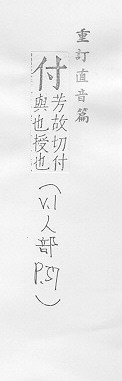 重訂直音篇
付
芳故切付
與也授也
(V.1人部P.57)